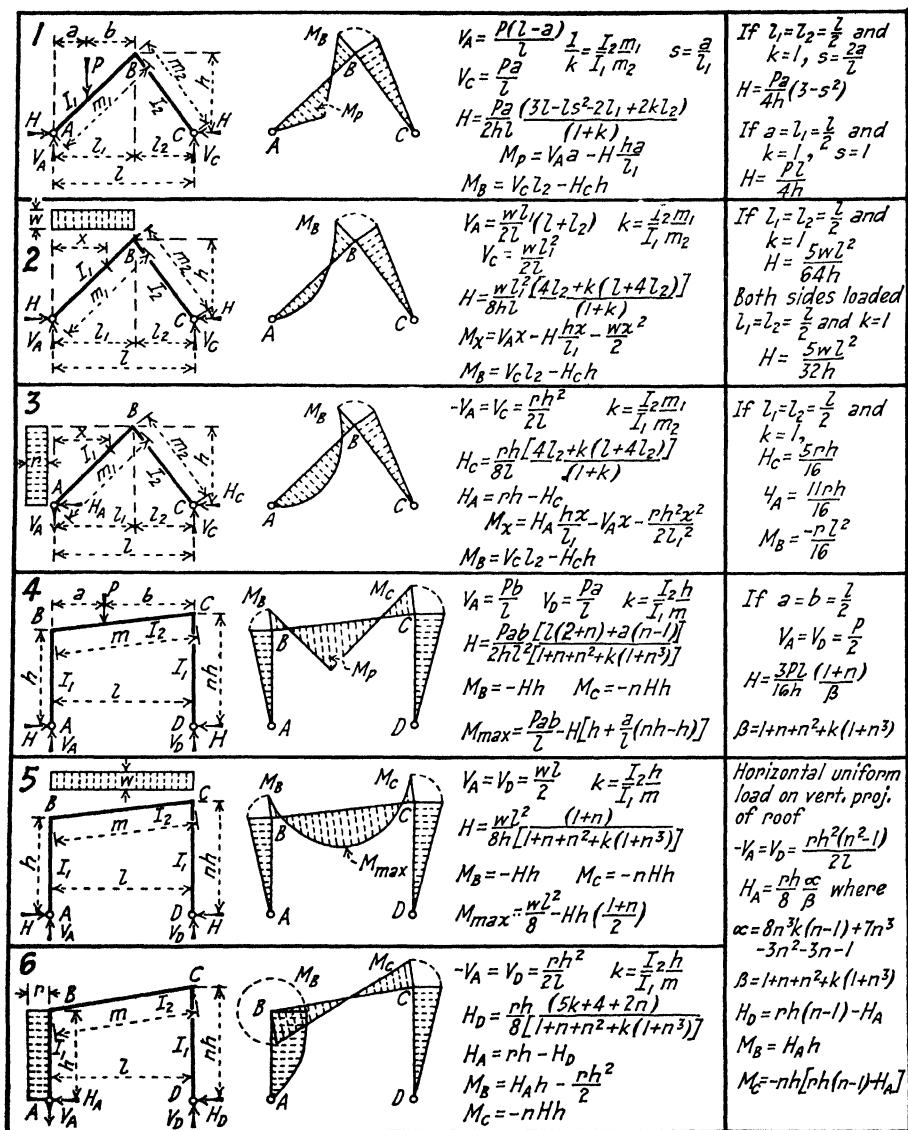 1
a b
P
B
m₂
h
I₁ m₁ I₂
H A C H
V_A l₁ l₂ V_C
l
M_B
B
M_P
A C
V_A = P(l-a)/l 1/k = I₂m₁/I₁m₂ s = a/l₁
V_C = Pa/l
H = Pa/2hl (3l-ls²-2l₁+2kl₂)/(1+k)
M_P = V_A a - H ha/l₁
M_B = V_C l₂ - H_C h
If l₁=l₂=l/2 and
k=1, s=2a/l
H = Pa/4h (3-s²)
If a=l₁=l/2 and
k=1, s=1
H = Pl/4h
2
w
x
B
m₂
h
I₁ m₁ I₂
H A C H
V_A l₁ l₂ V_C
l
M_B
B
A C
V_A = wl₁/2l (l+l₂) k = I₂m₁/I₁m₂
V_C = wl₁²/2l
H = wl₁²/8hl [4l₂+k(l+4l₂)]/(1+k)
M_x = V_A x - H hx/l₁ - wx²/2
M_B = V_C l₂ - H_C h
If l₁=l₂=l/2 and
k=1
H = 5wl²/64h
Both sides loaded
l₁=l₂=l/2 and k=1
H = 5wl²/32h
3
B
x
m₂
h
r I₁ m₁ I₂
A H_A C H_C
V_A l₁ l₂ V_C
l
M_B
B
A C
-V_A = V_C = rh²/2l k = I₂m₁/I₁m₂
H_C = rh/8l [4l₂+k(l+4l₂)]/(1+k)
H_A = rh - H_C
M_x = H_A hx/l₁ - V_A x - rh²x²/2l₁²
M_B = V_C l₂ - H_C h
If l₁=l₂=l/2 and
k=1,
H_C = 5rh/16
4_A = 11rh/16
M_B = -rl²/16
4
a P b
B C
m I₂
h I₁ I₁ nh
l
H A D H
V_A V_D
M_B M_C
B C
M_P
A D
V_A = Pb/l V_D = Pa/l k = I₂h/I₁m
H = Pab/2hl² [l(2+n)+a(n-1)]/[1+n+n²+k(1+n³)]
M_B = -Hh M_C = -nHh
M_max = Pab/l - H[h + a/l (nh-h)]
If a=b=l/2
V_A = V_D = P/2
H = 3Pl/16h (1+n)/β
β=1+n+n²+k(1+n³)
5
w
B C
m I₂
h I₁ I₁ nh
l
H A D H
V_A V_D
M_B M_C
B C
M_max
A D
V_A = V_D = wl/2 k = I₂h/I₁m
H = wl²/8h (1+n)/[1+n+n²+k(1+n³)]
M_B = -Hh M_C = -nHh
M_max = wl²/8 - Hh(1+n/2)
Horizontal uniform
load on vert. proj.
of roof
-V_A = V_D = rh²(n²-1)/2l
H_A = rh/8 α/β where
α=8n³k(n-1)+7n³
-3n²-3n-1
β=1+n+n²+k(1+n³)
H_D = rh(n-1)-H_A
M_B = H_A h
M_C = -nh[rh(n-1)-H_A]
6
r B C
m I₂
I₁ h I₁ nh
l
A H_A D
V_A V_D H_D
B M_B M_C
C
A D
-V_A = V_D = rh²/2l k = I₂h/I₁m
H_D = rh/8 (5k+4+2n)/[1+n+n²+k(1+n³)]
H_A = rh - H_D
M_B = H_A h - rh²/2
M_C = -nHh